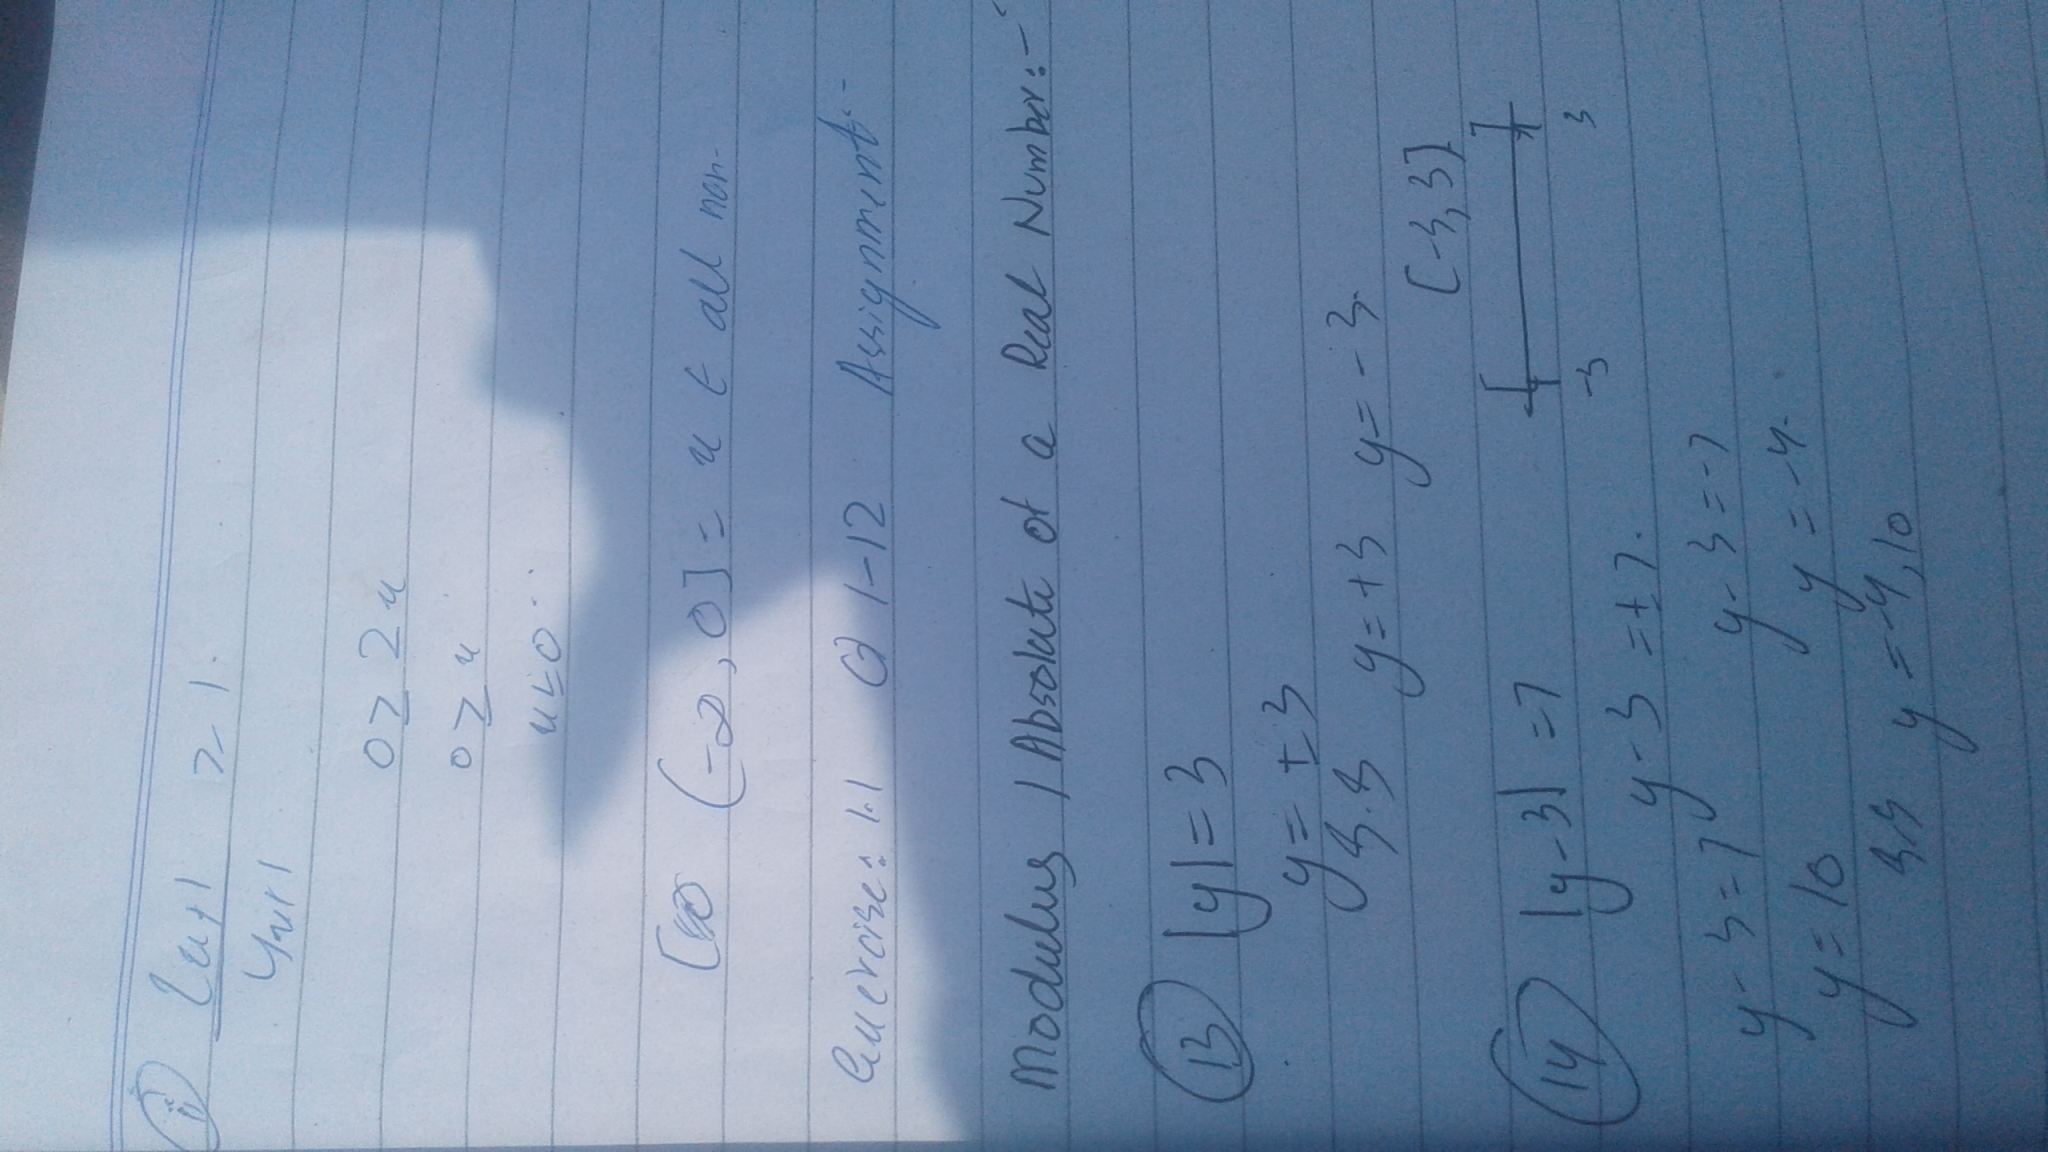 ii 2x+1 ≥ 1.
4x+1
0 ≥ 2x
0 ≥ x
x ≤ 0
(-∞, 0] = x ∈ all non-
Exercise: 1.1 Q 1-12 Assignment
Modulus / Absolute of a Real Number:-
13 |y| = 3
y = ± 3
S.S y = +3 y = -3.
[-3, 3]
14 |y-3| = 7
-3 3
y-3 = ±7.
y-3 = 7 y-3 = -7
y = 10 y = -4.
S.S y = -4, 10